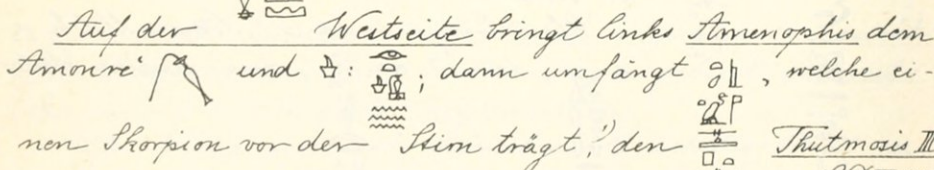 Auf der Westseite bringt links Amenophis dem
Amonrē und : ; dann umfängt , welche ei-
nen Skorpion vor der Stirn trägt,¹⁾ den Thutmosis III